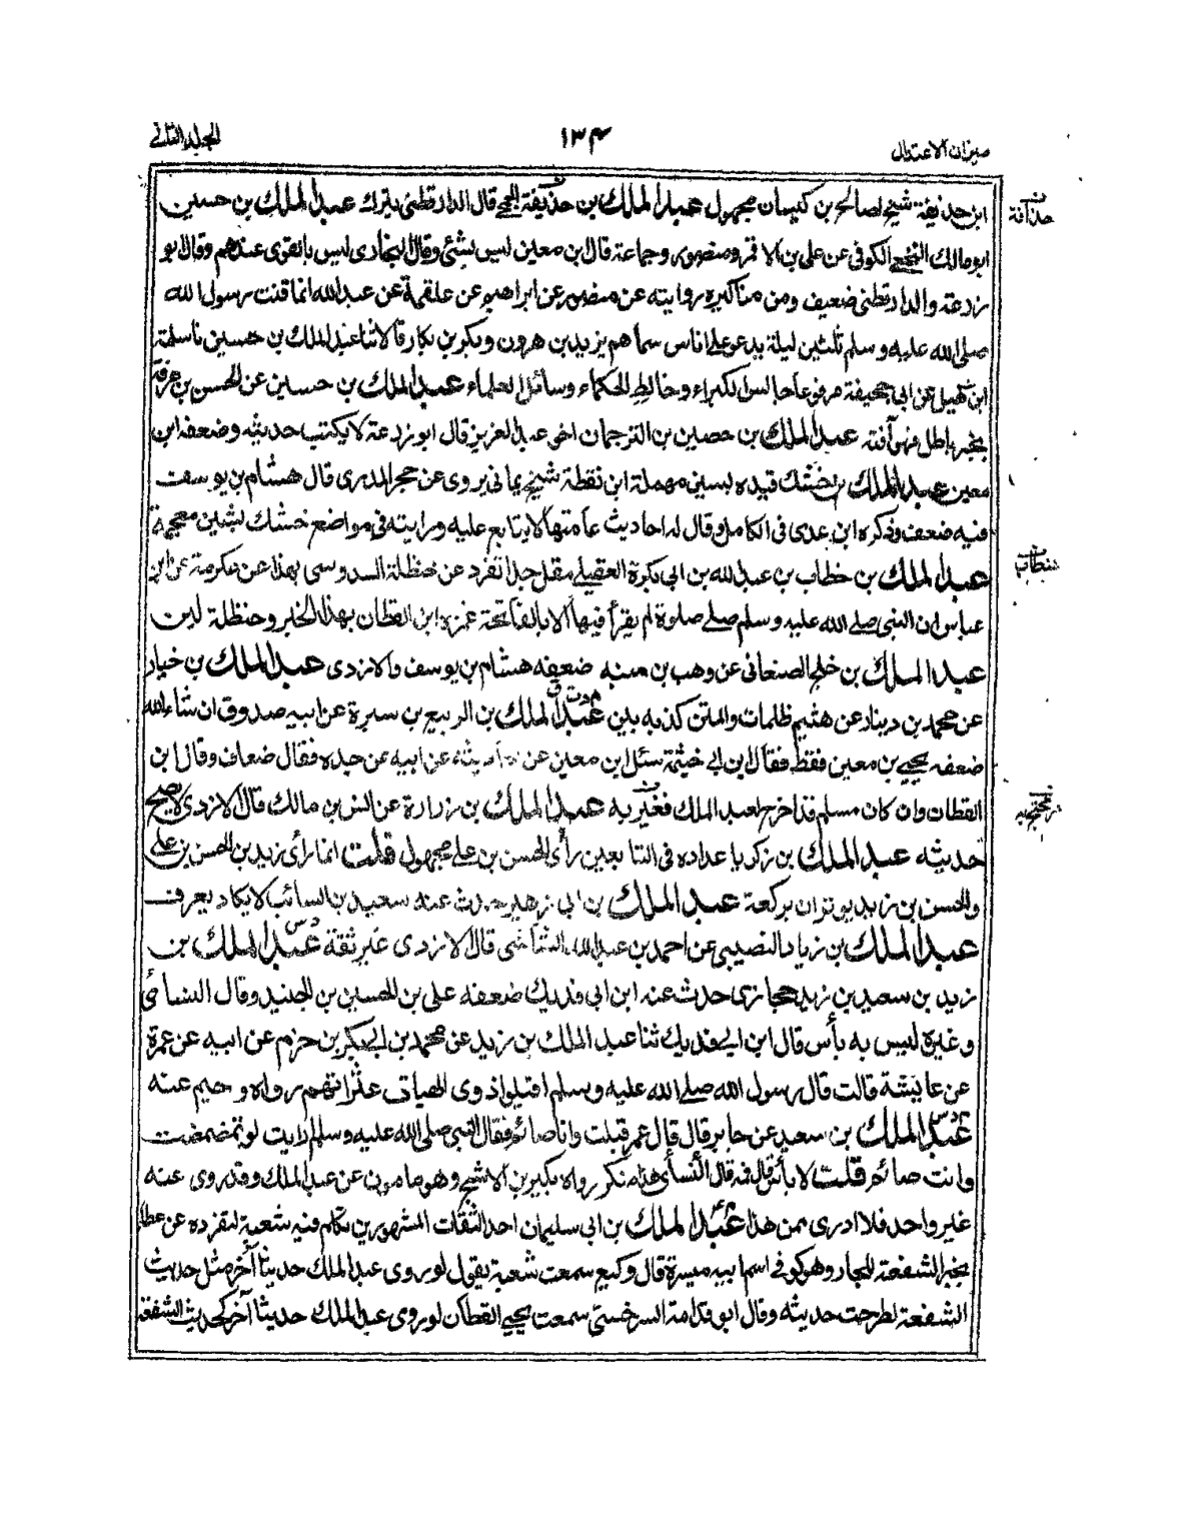 ميزان الاعتدال
١٣٤
المجلد الثانى
ابن حذيفة شيخ لصالح بن كيسان مجهول عبد الملك بن حذيفة الجمحى قال الدارقطنى يترك عبد الملك بن حسين
ابو مالك النخعى الكوفى عن على بن الاقمر ومنصور وجماعة قال ابن معين ليس بشئ وقال البخارى ليس بالقوى عندهم وقال ابو
زرعة والدارقطنى ضعيف ومن مناكيره روايته عن منصور عن ابراهيم عن علقمة عن عبد الله انما قنت رسول الله
صلى الله عليه وسلم ثلثين ليلة يدعو على اناس سماهم يزيد بن هرون وبكر بن بكار قالا ثنا عبد الملك بن حسين نا سلمة
ابن كهيل عن ابى جحيفة مرفوعا جالسوا الكبراء وخالطوا الحكماء وسائلوا العلماء عبد الملك بن حسين عن الحسن بن عرفة
بخبر باطل فهو آفته عبد الملك بن حصين بن الترجمان اخى عبد العزيز قال ابو زرعة لا يكتب حديثه وضعفه ابن
معين عبد الملك بن خشك قيده بسين مهملة ابن نقطة شيخ يمانى يروى عن حجر المدرى قال هشام بن يوسف
فيه ضعف وذكره ابن عدى فى الكامل وقال له احاديث عامتها لا يتابع عليه ورايته فى مواضع خشك بشين معجمة
عبد الملك بن خطاب بن عبد الله بن ابى بكرة العقيلى مقل جدا تفرد عن حنظلة السدوسى بهذا عن عكرمة عن ابن
عباس ان النبى صلى الله عليه وسلم صلى صلوة لم يقرأ فيها الا بالفاتحة غمزه ابن القطان بهذا الخبر وحنظلة لين
عبد الملك بن خلج الصنعانى عن وهب بن منبه ضعفه هشام بن يوسف والازدى عبد الملك بن خيار
عن محمد بن دينار عن هشيم ظلمات والمتن كذبه بين عبد الملك بن الربيع بن سبرة عن ابيه صدوق ان شاء الله
ضعفه يحيى بن معين فقط فقال ابن ابى خيثمة سئل ابن معين عن احاديثه عن ابيه عن جده فقال ضعاف وقال ابن
القطان وان كان مسلم قد اخرج لعبد الملك فغير به عبد الملك بن زرارة عن انس بن مالك قال الازدى لا يصح
حديثه عبد الملك بن زكريا عداده فى التابعين رأى الحسن بن على مجهول قلت انما رأى زيد بن الحسن بن على
والحسن بن زيد يوتران بركعة عبد الملك بن ابى زهير حدث عنه سعيد بن السائب لا يكاد يعرف
عبد الملك بن زياد النصيبى عن احمد بن عبد الله الشاشى قال الازدى غير ثقة عبد الملك بن
زيد بن سعيد بن زيد حجازى حدث عنه ابن ابى فديك ضعفه على بن الحسين بن الجنيد وقال النسائى
وغيره ليس به بأس قال ابن ابى فديك ثنا عبد الملك بن زيد عن محمد بن ابى بكر بن حزم عن ابيه عن عمرة
عن عايشة قالت قال رسول الله صلى الله عليه وسلم اقيلوا ذوى الهيات عثراتهم رواه دحيم عنه
عبد الملك بن سعيد عن جابر قال قال عمر قبلت وانا صائم فقال النبى صلى الله عليه وسلم ارايت لو تمضمضت
وانت صائم قلت لا بأس قال فمه قال النسائى هذا منكر رواه بكير بن الاشج وهو مامون عن عبد الملك وقد روى عنه
غير واحد فلا ادرى ممن هذا عبد الملك بن ابى سليمان احد الثقات المشهورين تكلم فيه شعبة لتفرده عن عطا
بخبر الشفعة للجار وهو كوفى اسم ابيه ميسرة قال وكيع سمعت شعبة يقول لو روى عبد الملك حديثا آخر مثل حديث
الشفعة لطرحت حديثه وقال ابو قدامة السرخسى سمعت يحيى القطان لو روى عبد الملك حديثا آخر كحديث الشفعة